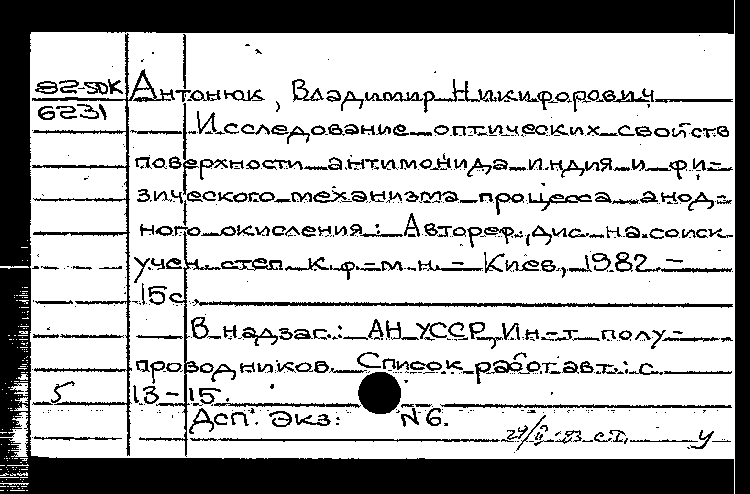 82-5DK Антонюк, Владимир Никифорович
6231
Исследование оптических свойств
поверхности антимонида индия и фи-
зического механизма процесса анод-
ного окисления: Автореф. дис. на соиск
учен. степ. к.ф.-м.н. - Киев, 1982. -
15с.
В надзаг.: АН УССР, Ин-т полу-
проводников. Список работ авт.: с.
5 13-15.
Дсп. Экз: N6.
29/II-83 с.т. У